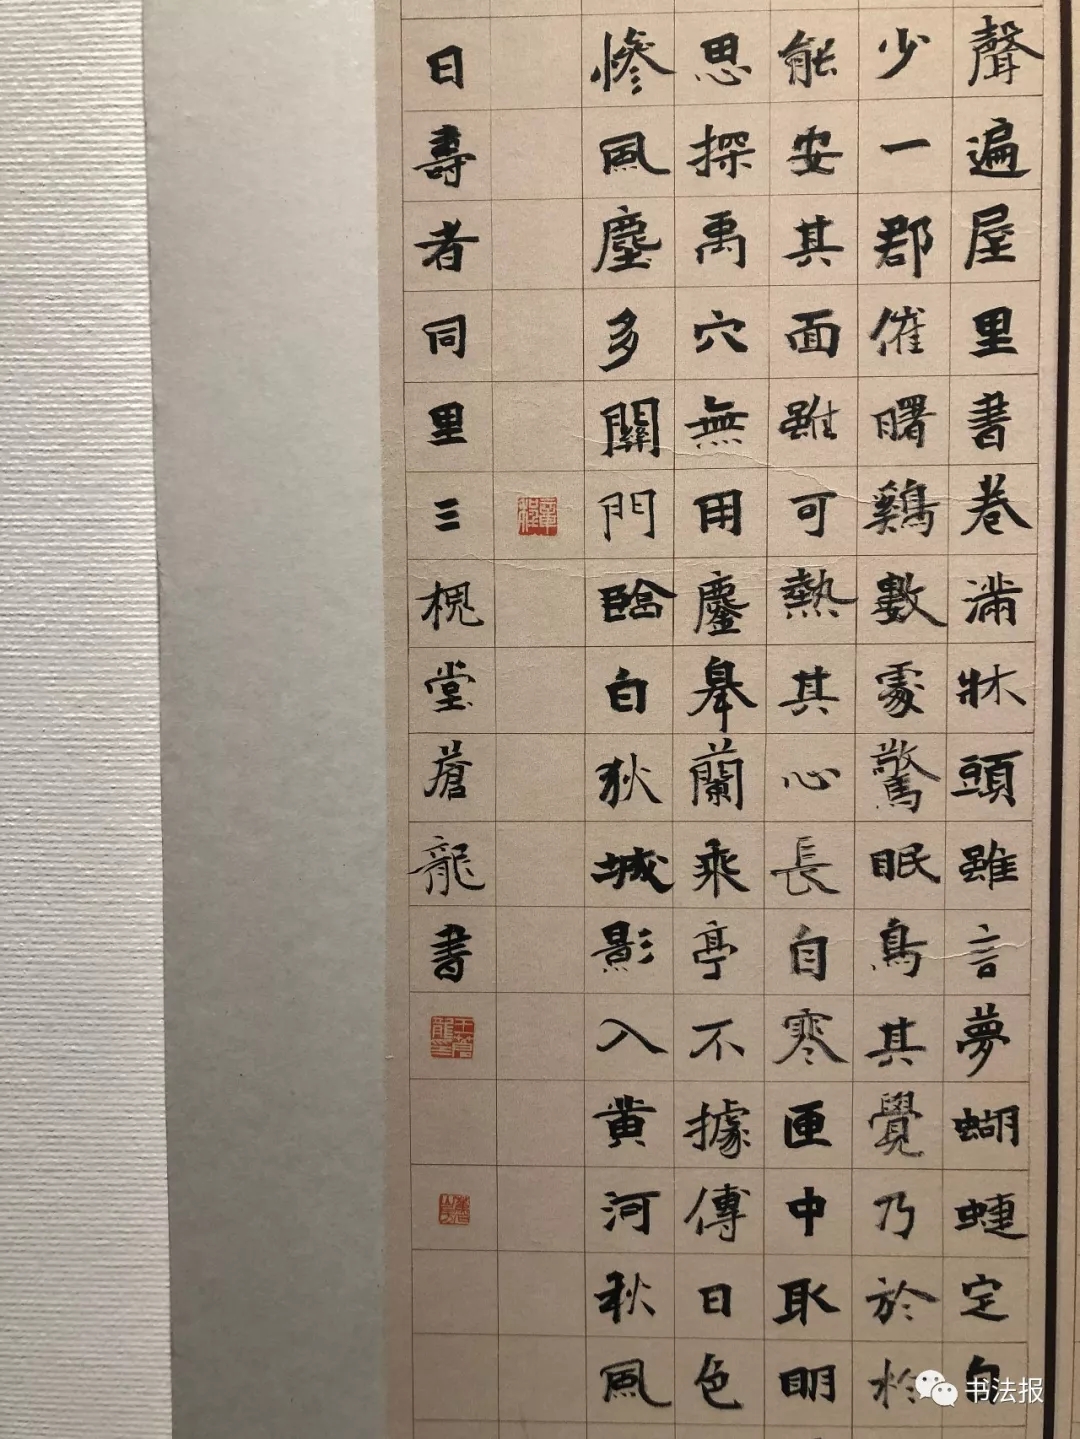 聲遍屋里書卷滿牀頭雖言夢蝴蜨定自
少一郡催曙鷄數處驚眠鳥其覺乃於
能安其面雖可熱其心長自寒匣中取明
思探禹穴無用鏖皋蘭乘亭不據傳日色
慘風塵多關門臨白狄城影入黄河秋風
日壽者同里三槐堂蒼龍書
书法报